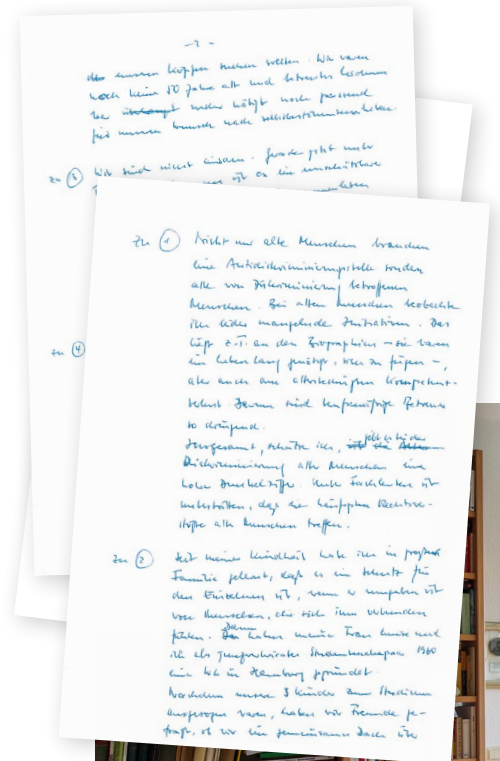 - 2 -
unseren Köpfen suchen wollten. Wir waren
noch keine 50 Jahre alt und betreutes Wohnen
war weder nötig noch passend
für unseren Wunsch nach selbstbestimmtem Leben.
zu ③ Wir sind nicht einsam. Gerade jetzt mehr
ist es ein unschätzbarer
zu ④
Zu ① Nicht nur alte Menschen brauchen
eine Antidiskriminierungsstelle sondern
alle von Diskriminierung betroffenen
Menschen. Bei alten Menschen beobachte
ich leider mangelnde Initiativen. Das
liegt z.T. an den Biographien – sie waren
ein Leben lang genötigt, sich zu fügen –,
aber auch am altersbedingten Kompetenz-
verlust. Darum sind
so dringend.
Insgesamt, schätze ich, gibt es bei der
Diskriminierung alter Menschen eine
hohe Dunkelziffer. Unter Fachleuten ist
unbestritten, dass die häufigsten Rechtsver-
stöße alte Menschen treffen.
Zu ② Seit meiner Kindheit habe ich in großer
Familie gelernt, dass es ein Schutz für
den Einzelnen ist, wenn er umgeben ist
von Menschen, die sich ihm verbunden
fühlen. Dann haben meine Frau Luise und
ich als jungverheiratetes Studentenehepaar 1960
eine WG in Hamburg gegründet.
Nachdem unsere 3 Kinder zum Studium
ausgezogen waren, haben wir Freunde ge-
fragt, ob wir ein gemeinsames Dach über